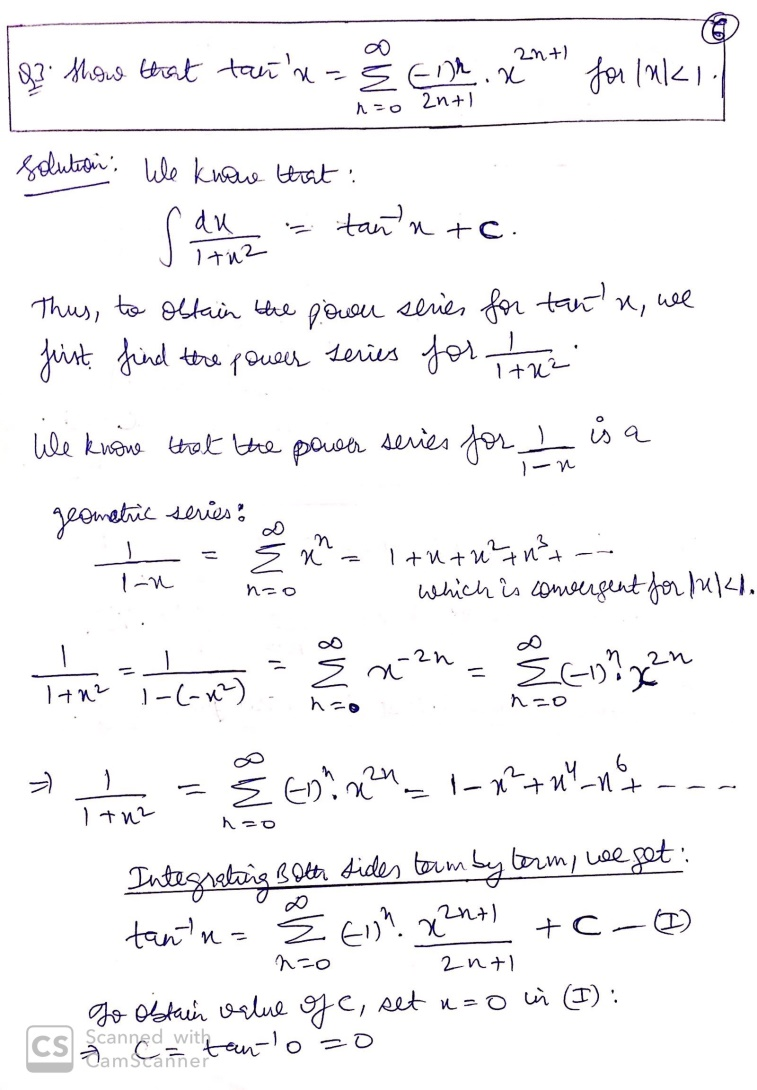 6
Q3. Show that tan⁻¹x = ∑_{n=0}^{∞} (-1)ⁿ/(2n+1) . x^{2n+1} for |x|<1.
Solution: We know that :
∫ dx/(1+x²) = tan⁻¹x + C.
Thus, to obtain the power series for tan⁻¹x, we
first find the power series for 1/(1+x²).
We know that the power series for 1/(1-x) is a
geometric series:
1/(1-x) = ∑_{n=0}^{∞} xⁿ = 1+x+x²+x³+ ---
which is convergent for |x|<1.
1/(1+x²) = 1/(1-(-x²)) = ∑_{n=0}^{∞} x^{-2n} = ∑_{n=0}^{∞} (-1)ⁿ. x^{2n}
⇒ 1/(1+x²) = ∑_{n=0}^{∞} (-1)ⁿ. x^{2n} = 1-x²+x⁴-x⁶+ ----
Integrating Both sides term by term, we get :
tan⁻¹x = ∑_{n=0}^{∞} (-1)ⁿ. x^{2n+1}/(2n+1) + C — (I)
To obtain value of C, set x=0 in (I) :
⇒ C = tan⁻¹0 = 0
CS Scanned with
CamScanner